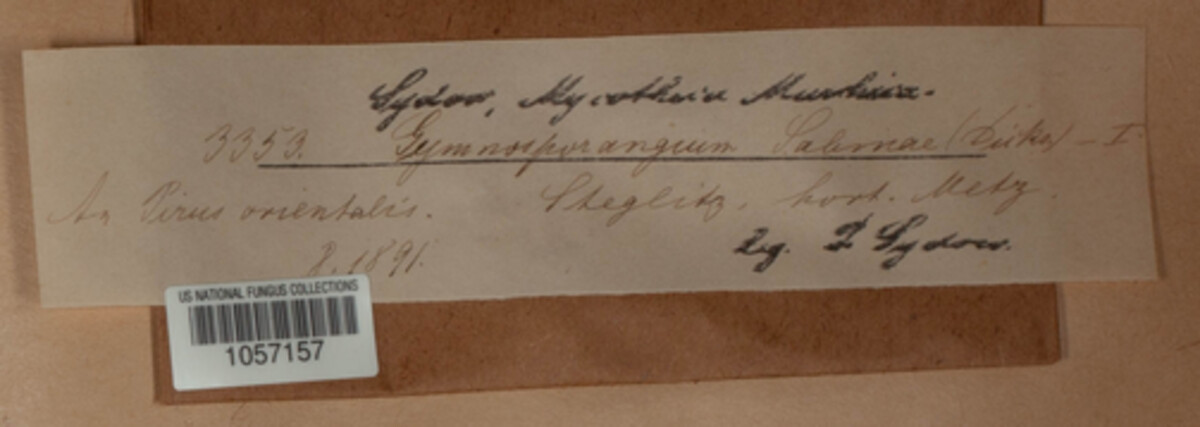 Sydow, Mycotheca Marchica.
3353. Gymnosporangium Sabinae (Dicks) – I
An Pirus orientalis. Steglitz, hort. Metz.
8. 1891. Leg. P Sydow.
US NATIONAL FUNGUS COLLECTIONS
1057157